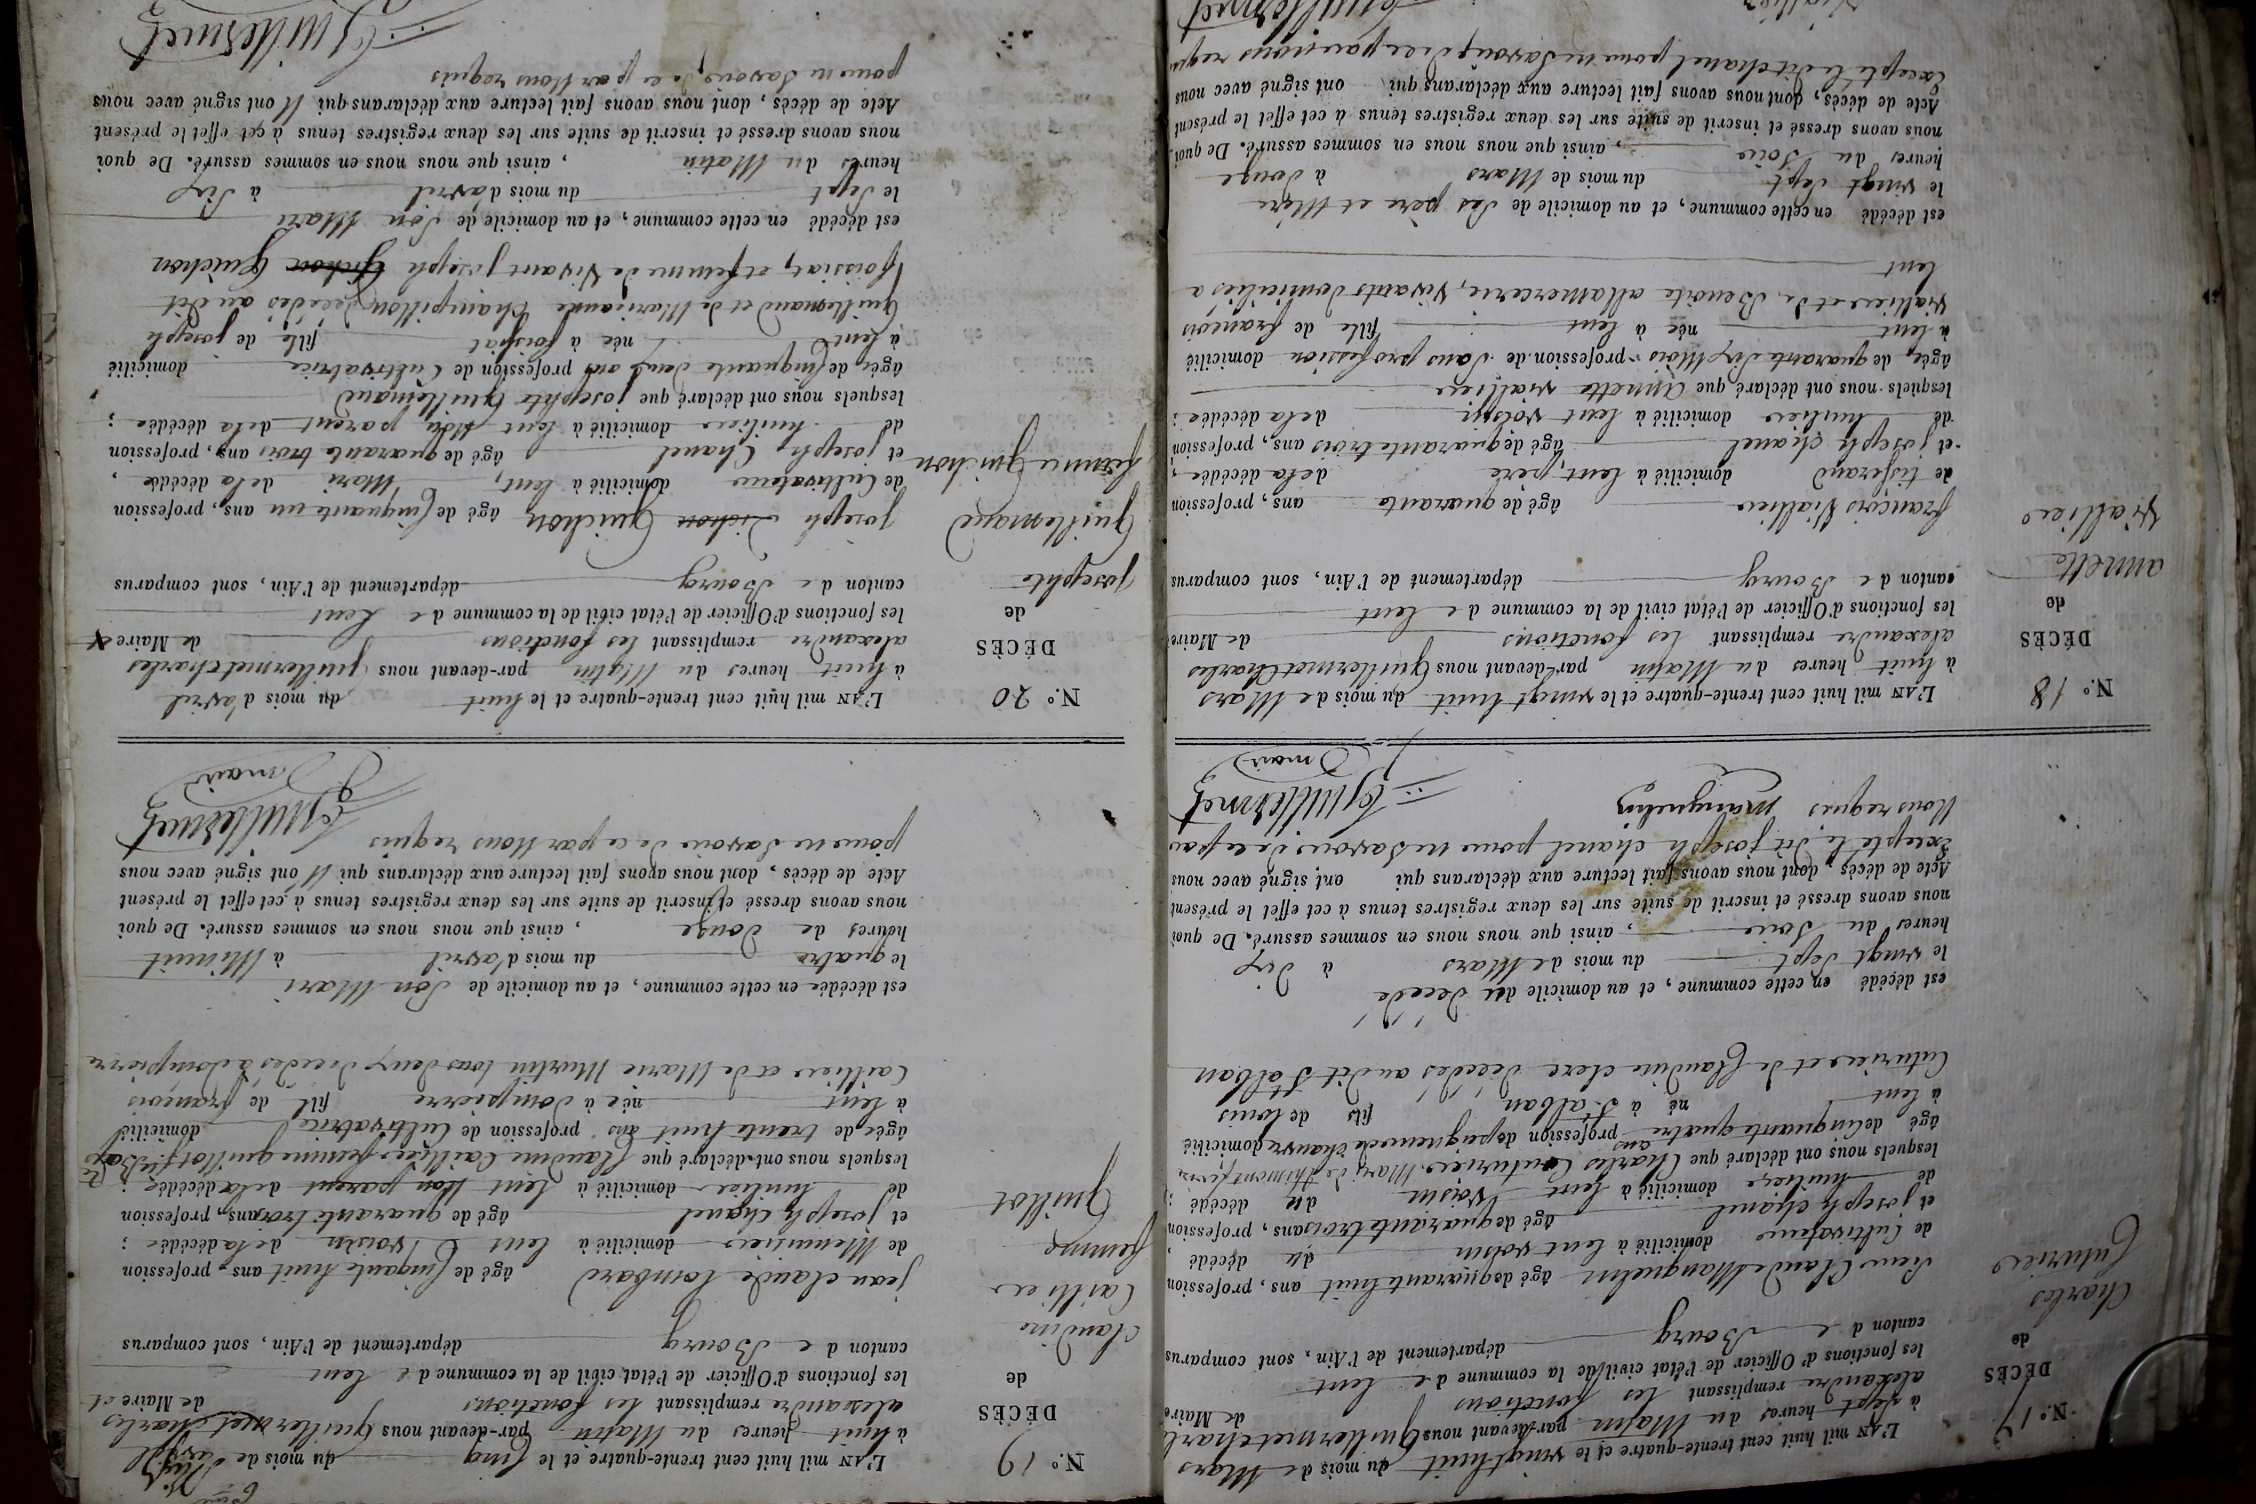 N.° 17
DÉCÈS
de
Charles
Cuturier
L'AN mil huit cent trente-quatre et le vingt huit du mois de Mars
à sept heures du Matin par-devant nous Guillermet Charles
alexandre remplissant les fonctions de Maire
les fonctions d'Officier de l'état civil de la commune de lent
canton de Bourg département de l'Ain, sont comparus
Sieur Claude Manguelin âgé de quarante huit ans, profession
de Cultivateur domicilié à lent voisin du décédé,
et joseph chanel âgé de quarante trois ans, profession
de huilier domicilié à lent voisin du décédé;
lesquels nous ont déclaré que Charles Cuturier Mari de
âgé de cinquante quatre ans profession de peigneur de chanvre domicilié
à lent né à St alban fils de louis
Cuturier et de Claudine clere décédés au dit St alban
est décédé en cette commune, et au domicile du décédé
le vingt sept du mois de Mars à dix
heures du soir, ainsi que nous nous en sommes assuré. De quoi
nous avons dressé et inscrit de suite sur les deux registres tenus à cet effet le présent
Acte de décès, dont nous avons fait lecture aux déclarans qui ont signé avec nous
Excepté le dit joseph chanel pour ne savoir de ce par
Nous requis Manguelin Guillermet
maire
N.° 18
DÉCÈS
de
annette
Viallier
L'AN mil huit cent trente-quatre et le vingt huit du mois de Mars
à huit heures du Matin par-devant nous Guillermet Charles
alexandre remplissant les fonctions de Maire
les fonctions d'Officier de l'état civil de la commune de lent
canton de Bourg département de l'Ain, sont comparus
françois Viallier âgé de quarante ans, profession
de tisserand domicilié à lent, père de la décédée,
et joseph chanel âgé de quarante trois ans, profession
de huilier domicilié à lent voisin de la décédée;
lesquels nous ont déclaré que annette viallier
âgée de quarante dix Mois profession de Sans profession domicilié
à lent née à lent fille de françois
Viallier et de Benoite allamercerie, Vivants domiciliés a
lent
est décédé en cette commune, et au domicile de ses père et Mère
le vingt sept du mois de Mars à douze
heures du soir, ainsi que nous nous en sommes assuré. De quoi
nous avons dressé et inscrit de suite sur les deux registres tenus à cet effet le présent
Acte de décès, dont nous avons fait lecture aux déclarans qui ont signé avec nous
Excepté le dit chanel pour ne savoir de ce par nous requis
Viallier Guillermet
N.° 19
DÉCÈS
de
claudine
Caillier
femme
Guillot
L'AN mil huit cent trente-quatre et le Cinq du mois de avril
à huit heures du Matin par-devant nous Guillermet Charles
alexandre remplissant les fonctions de Maire et
les fonctions d'Officier de l'état civil de la commune de lent
canton de Bourg département de l'Ain, sont comparus
jean claude lombard âgé de Cinquante huit ans, profession
de Menuisier domicilié à lent voisin de la décédée;
et joseph chanel âgé de quarante trois ans, profession
de huilier domicilié à lent Non parent de la décédée;
lesquels nous ont déclaré que Claudine Caillier femme guillot
âgée de trente huit ans profession de Cultivatrice domicilié
à lent née à Dompierre fil de françois
Caillier et de Marie Martin tous deux décédés à dompierre
est décédée en cette commune, et au domicile de son Mari
le quatre du mois d'avril à Minuit
heures de Douze, ainsi que nous nous en sommes assuré. De quoi
nous avons dressé et inscrit de suite sur les deux registres tenus à cet effet le présent
Acte de décès, dont nous avons fait lecture aux déclarans qui N ont signé avec nous
pour ne savoir de ce par Nous requis
Guillermet
maire
N.° 20
DÉCÈS
de
josephte
Guillemaud
femme Guichon
L'AN mil huit cent trente-quatre et le huit du mois d'avril
à huit heures du Matin par-devant nous Guillermet Charles
alexandre remplissant les fonctions de Maire
les fonctions d'Officier de l'état civil de la commune de Lent
canton de Bourg département de l'Ain, sont comparus
joseph Guichon âgé de Cinquante un ans, profession
de Cultivateur domicilié à lent, Mari de la décédée,
et joseph Chanel âgé de quarante trois ans, profession
de huilier domicilié à lent Non parent de la décédée;
lesquels nous ont déclaré que josephte Guillemaud
âgée de Cinquante deux ans profession de Cultivatrice domicilié
à lent née à foissiat fille de joseph
Guillemaud et de Marianne Champillon décédés au dit
foissiat, et femme de Vivant joseph Guichon
est décédé en cette commune, et au domicile de son Mari
le sept du mois d'avril à Dix
heures du Matin, ainsi que nous nous en sommes assuré. De quoi
nous avons dressé et inscrit de suite sur les deux registres tenus à cet effet le présent
Acte de décès, dont nous avons fait lecture aux déclarans qui N ont signé avec nous
pour ne savoir de ce par Nous requis
Guillermet